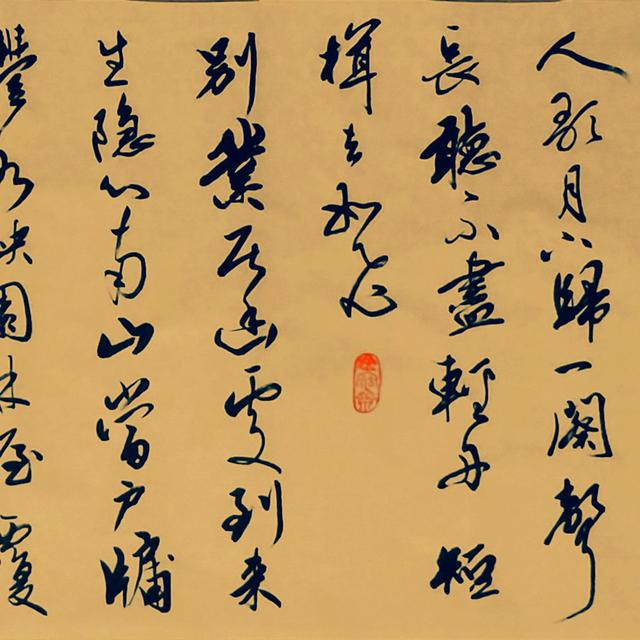 人歌月下歸一闋聲
長聽不盡輕舟短
楫去如飛
别業居幽處到来
生隐心南山當户牖
水映園林屋覆